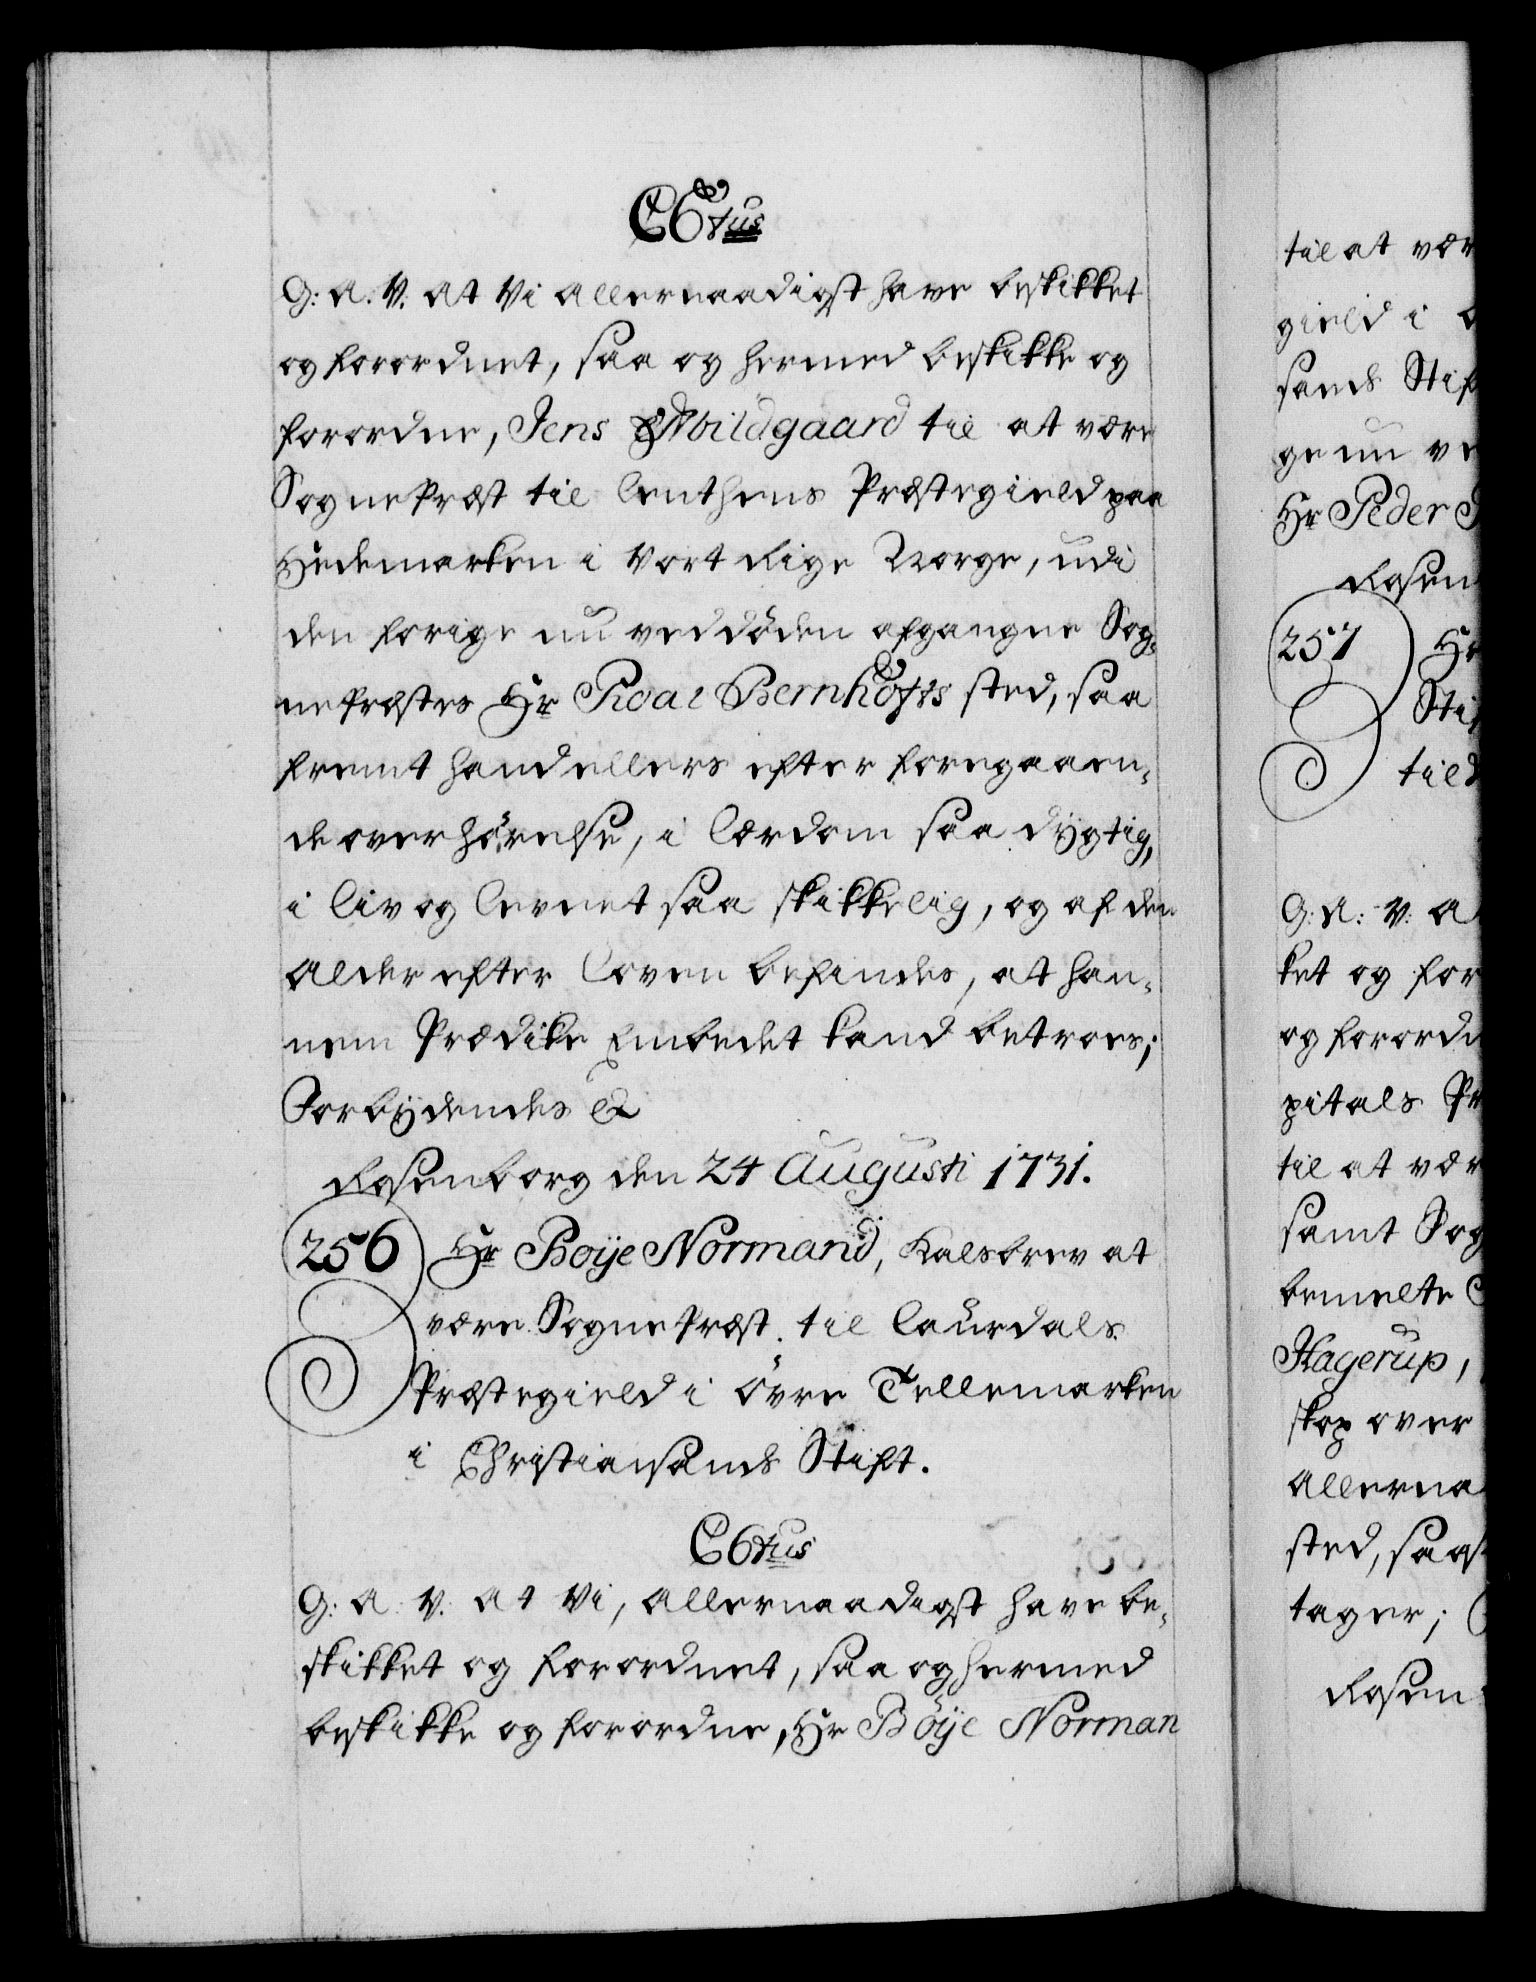 C6tus
G: A. V. At Vi allernaadigst have beskikket
og forordnet, saa og hermed beskikke og
forordne, Jens Abildgaard til at være
SognePræst til Leuthens Præstegield paa
Hedemarken i Vort Rige Norge, udi
den forige nu ved døden afgangne Sog¬
nePræstes Hr Roal Bernhofts sted, saa
fremt hand ellers efter foregaaen¬
de overhörelse, i Lærdom saa dÿgtig,
i Liv og Levnet saa skikkelig, og af den
Alder efter Loven befindes, at han¬
nem Prædike Embedet kand betroes;
Forbÿdendes &
Rosenborg den 24 Augusti 1731.
256 Hr Boÿe Normand, Kalsbrev at
være SognePræst til Laurdals
Præstegield i övre Tellemarken
i Christiansands Stift.
C6tus
G: A. V. At Vi, allernaadigst have be¬
skikket og forordnet, saa og hermed
beskikke og forordne, Hr Böÿe Norman
til at vær
gield i
sands Stif
ge nu ve
Hr Peder
Rosen
257 Hr
Sti
til
G: A: V: A
ket og for
og forordn
pitals Pr
til at vær
samt Sog
bemelte
Hagerup,
skop over
Allerna
sted, saa
tager;
Rosen